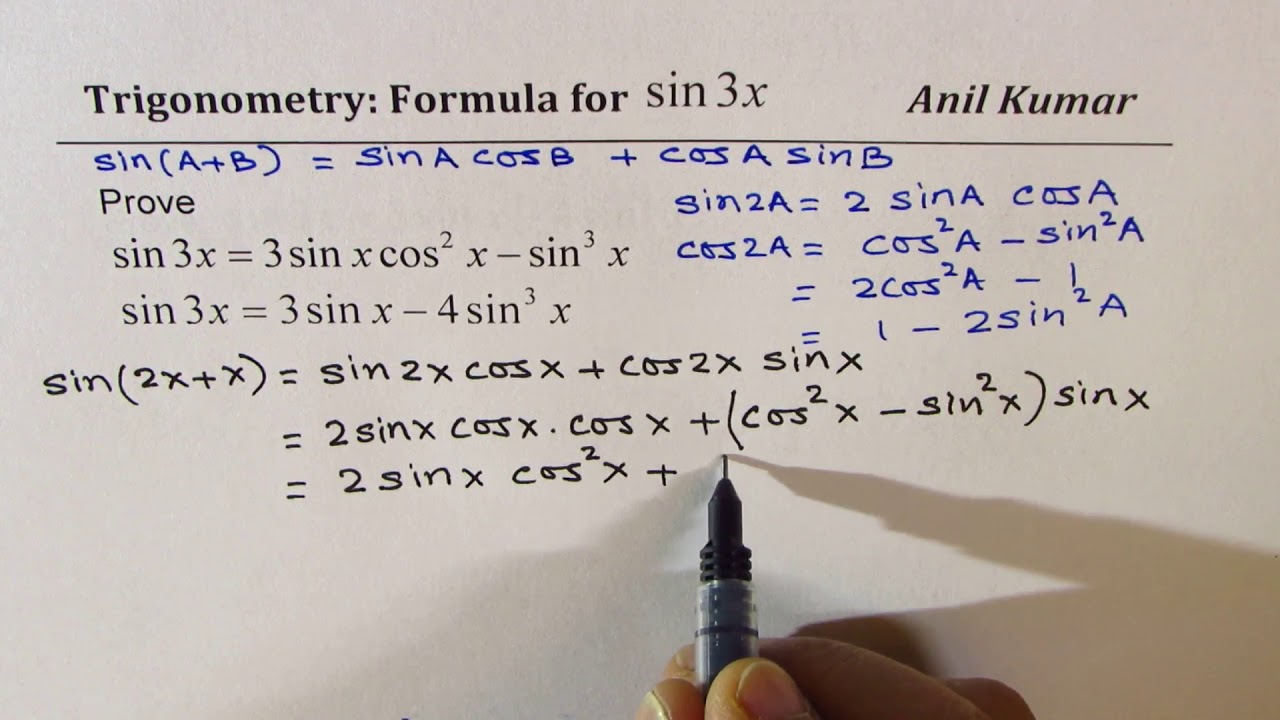 Trigonometry: Formula for sin 3x Anil Kumar
sin(A+B) = sinA cosB + cosA sinB
Prove
sin2A = 2 sinA cosA
sin 3x = 3 sin x cos² x − sin³ x
cos2A = cos²A − sin²A
= 2cos²A − 1
sin 3x = 3 sin x − 4 sin³ x
= 1 − 2sin²A
sin(2x+x) = sin2x cosx + cos2x sinx
= 2sinx cosx . cosx + (cos²x − sin²x) sinx
= 2 sinx cos²x +